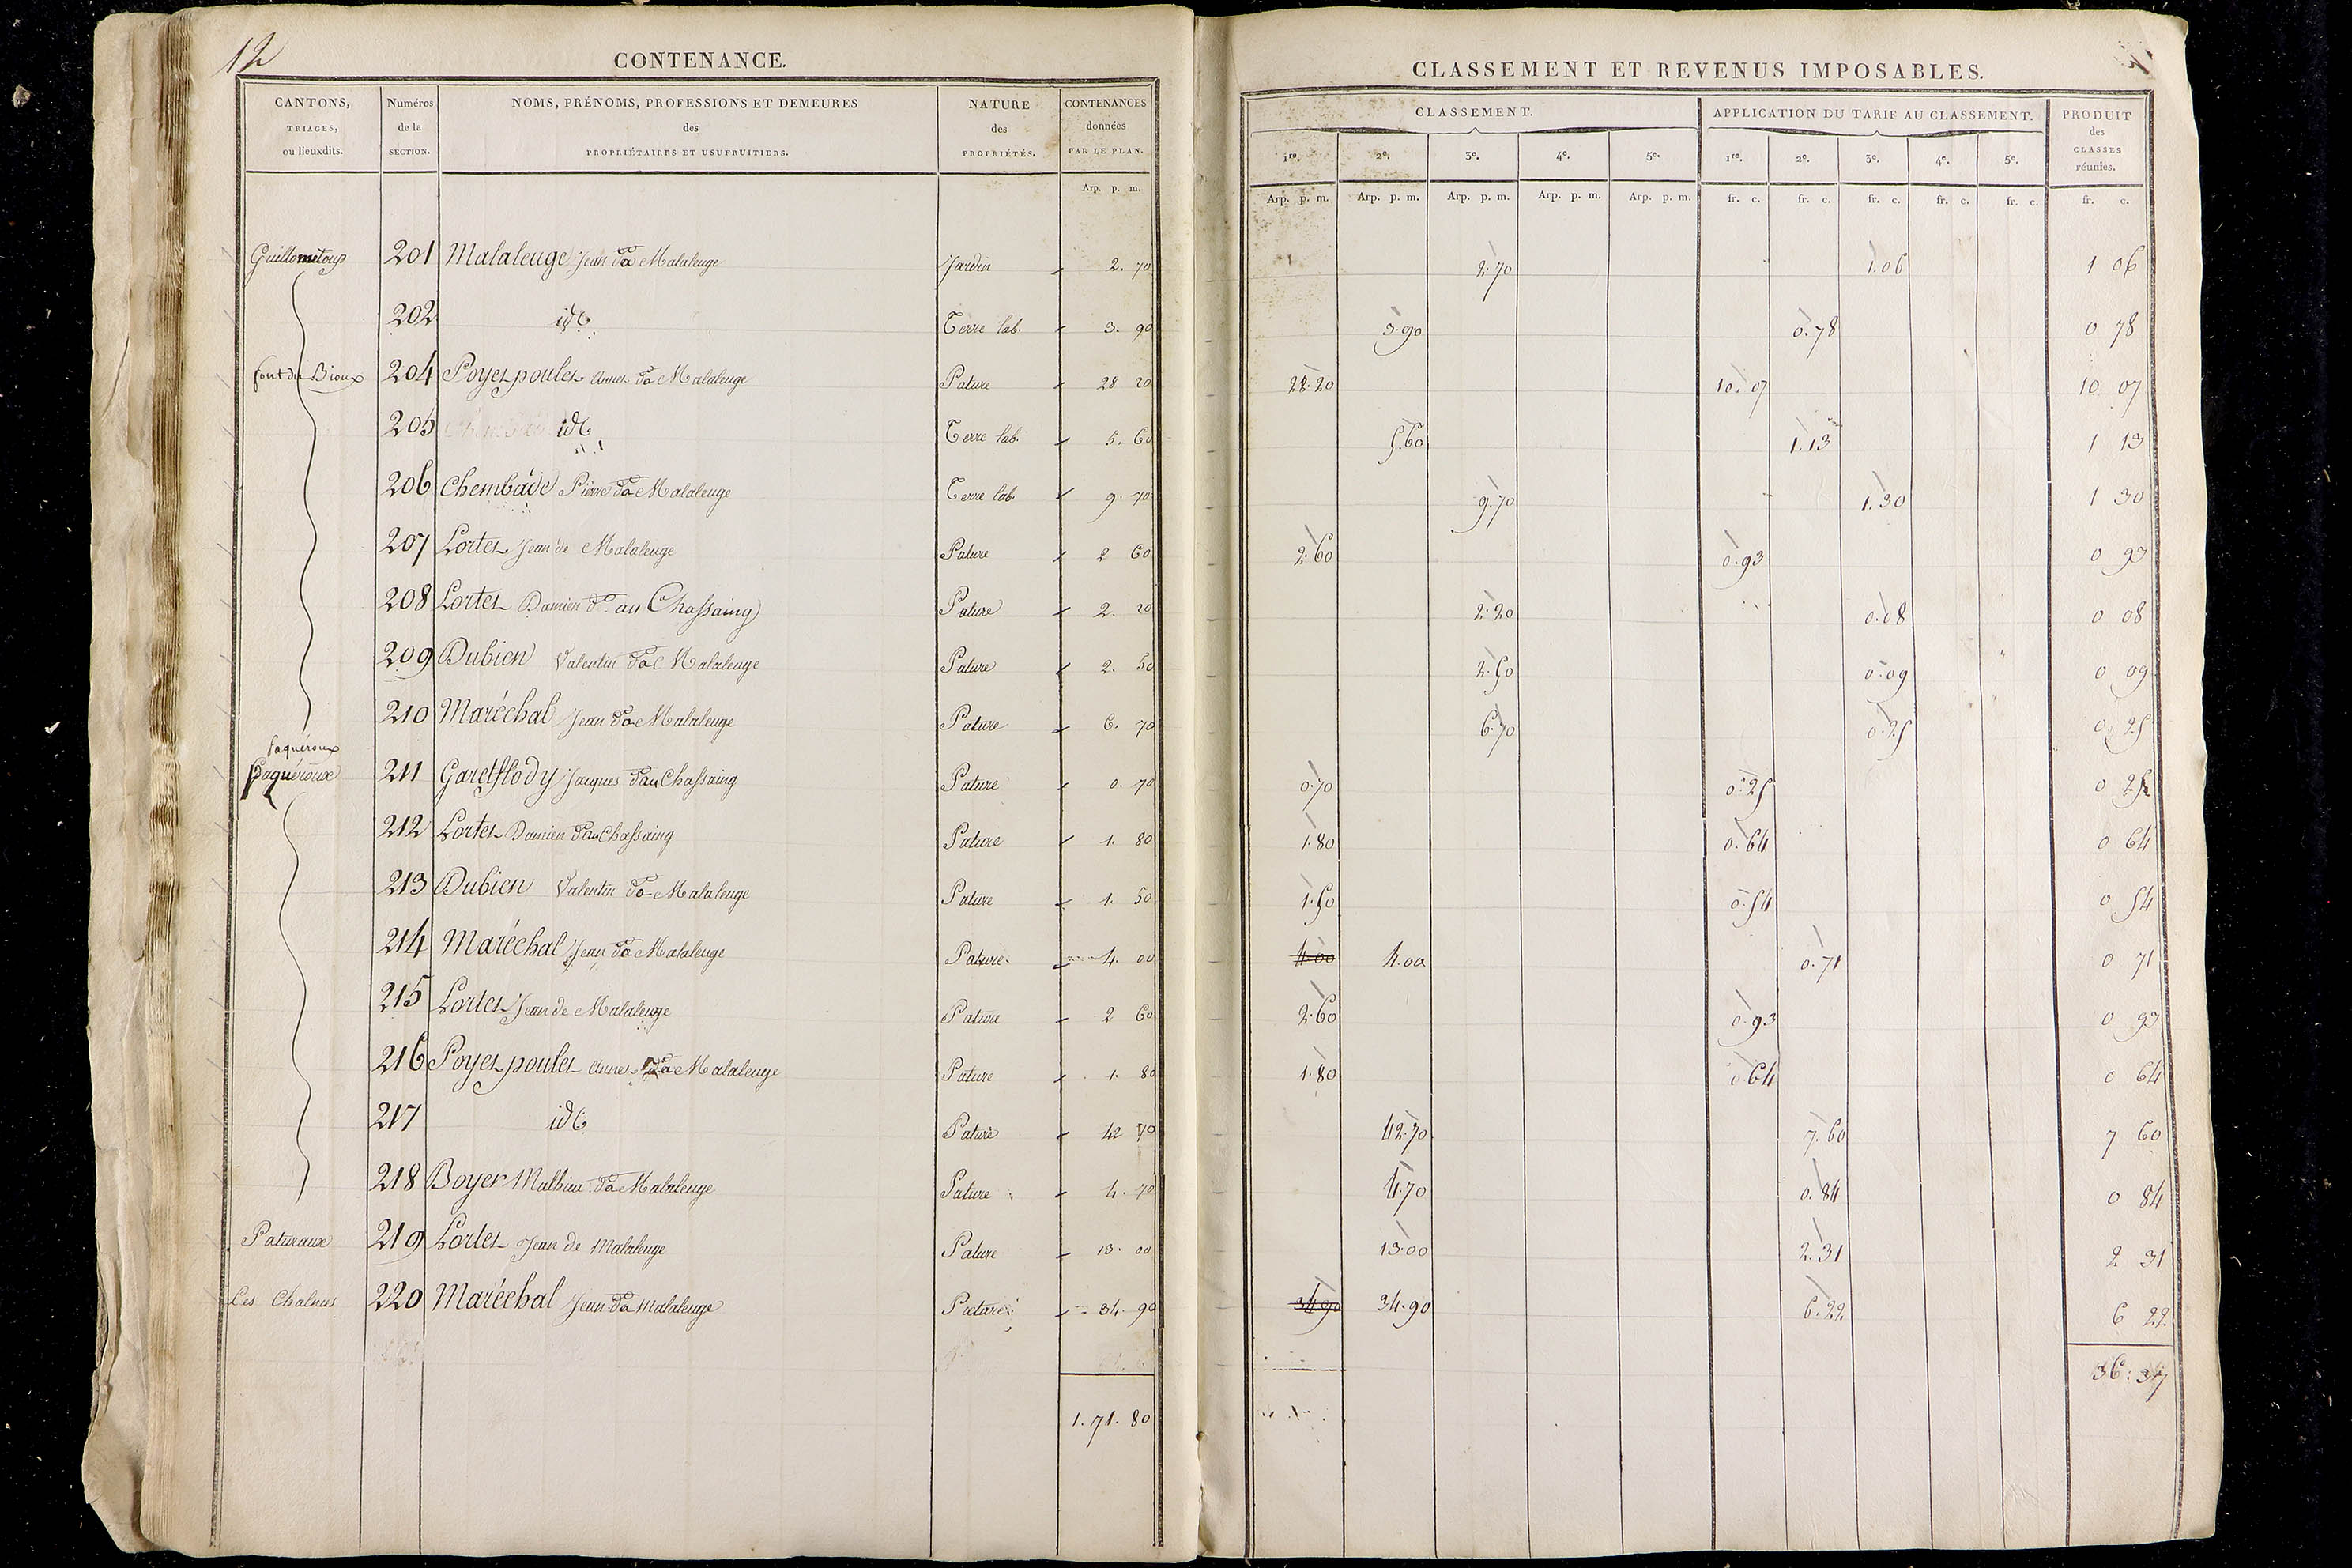 12
CONTENANCE.
CANTONS, TRIAGES, ou lieuxdits. Numéros de la SECTION. NOMS, PRÉNOMS, PROFESSIONS ET DEMEURES des PROPRIÉTAIRES ET USUFRUITIERS. NATURE des PROPRIÉTÉS. CONTENANCES données PAR LE PLAN.
Arp. p. m.
201 Malaleuge Jean do a Malaleuge Jardin 2. 70
202 id Terre lab. 3. 90
font du Bioux 204 Poyet poulet anne do a Malaleuge Pature 28 20
205 id Terre lab. 5. 60
206 Chembade Pierre do a Malaleuge Terre lab. 9. 70
207 Lortet Jean de Malaleuge Pature 2 60
208 Lortet Damien do au Chassaing Pature 2. 20
209 Dubien Valentin do a Malaleuge Pature 2. 50
210 Maréchal Jean do a Malaleuge Pature 6. 70
faquéroux
faquéroux 211 Garetflody Jacques do au Chassaing Pature 0. 70
212 Lortet Damien do au Chassaing Pature 1. 80
213 Dubien Valentin do a Malaleuge Pature 1. 50
214 Maréchal Jean do a Malaleuge Pature 4. 00
215 Lortet Jean de Malaleuge Pature 2 60
216 Poyet poulet anne do a Malaleuge Pature 1. 80
217 id Pature 42 70
218 Boyer Mathieu do a Malaleuge Pature 4. 70
Paturaux 219 Lortet Jean de Malaleuge Pature 13. 00
Les 220 Maréchal Jean do a Malaleuge Pature 34. 90
1. 71. 80
CLASSEMENT ET REVENUS IMPOSABLES.
CLASSEMENT. APPLICATION DU TARIF AU CLASSEMENT. PRODUIT des CLASSES réunies.
1re. 2e. 3e. 4e. 5e. 1re. 2e. 3e. 4e. 5e.
Arp. p. m. Arp. p. m. Arp. p. m. Arp. p. m. Arp. p. m. fr. c. fr. c. fr. c. fr. c. fr. c. fr. c.
2.70 1.06 1 06
3.90 0.78 0 78
28.20 10.07 10 07
5.60 1.13 1 13
9.70 1.30 1 30
2.60 0.93 0 93
2.20 0.08 0 08
2.50 0.09 0 09
6.70 0.25 0 25
0.70 0.25 0 25
1.80 0.64 0 64
1.50 0.54 0 54
4.00 4.00 0.71 0 71
2.60 0.93 0 93
1.80 0.64 0 64
42.70 7.60 7 60
4.70 0.84 0 84
13.00 2.31 2 31
34.90 34.90 6.22 6 22
36.37